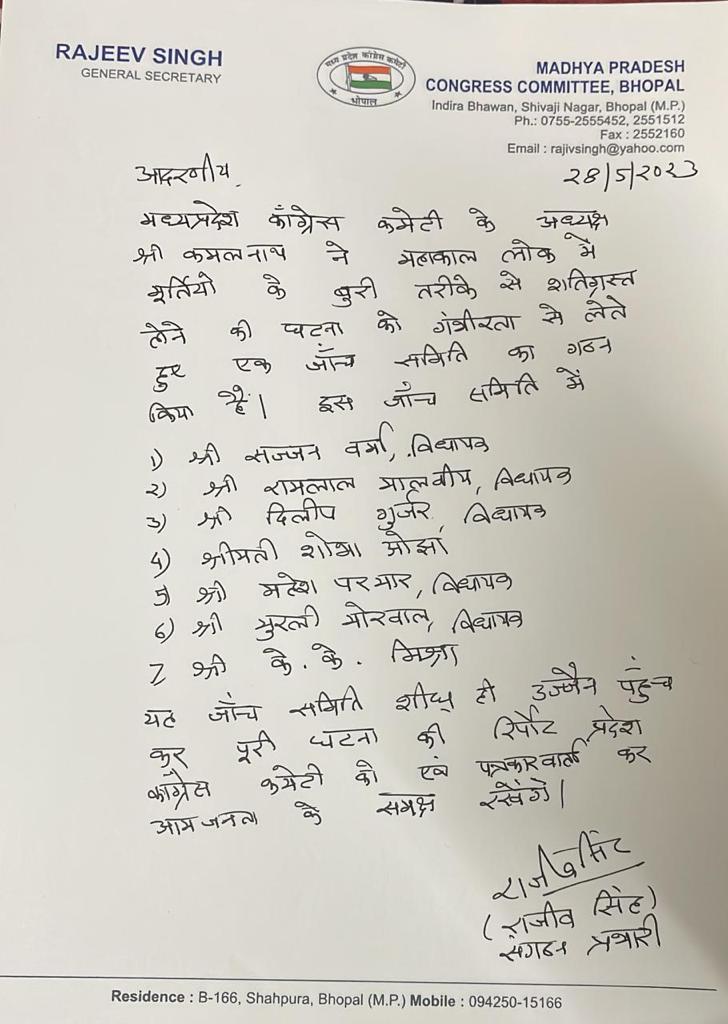 RAJEEV SINGH
GENERAL SECRETARY
मध्य प्रदेश काँग्रेस कमेटी
भोपाल
MADHYA PRADESH
CONGRESS COMMITTEE, BHOPAL
Indira Bhawan, Shivaji Nagar, Bhopal (M.P.)
Ph.: 0755-2555452, 2551512
Fax : 2552160
Email : rajivsingh@yahoo.com
आदरणीय,
28/5/2023
मध्यप्रदेश काँग्रेस कमेटी के अध्यक्ष
श्री कमलनाथ ने महाकाल लोक में
मूर्तियो के बुरी तरीके से शतिग्रस्त
होने की घटना को गंभीरता से लेते
हुए एक जाँच समिति का गठन
किया है। इस जाँच समिति में
1) श्री सज्जन वर्मा, विधायक
2) श्री रामलाल मालवीय, विधायक
3) श्री दिलीप गुर्जर, विधायक
4) श्रीमती शोभा ओझा
5) श्री महेश परमार, विधायक
6) श्री मुरली मोरवाल, विधायक
7 श्री के. के. मिश्रा
यह जाँच समिति शीघ्र ही उज्जैन पहुंच
कर पूरी घटना की रिर्पोट प्रदेश
काँग्रेस कमेटी को एवं पत्रकारवार्ता कर
आमजनता के समक्ष रखेंगे।
राजीव सिंह
(राजीव सिंह)
संगठन प्रभारी
Residence : B-166, Shahpura, Bhopal (M.P.) Mobile : 094250-15166